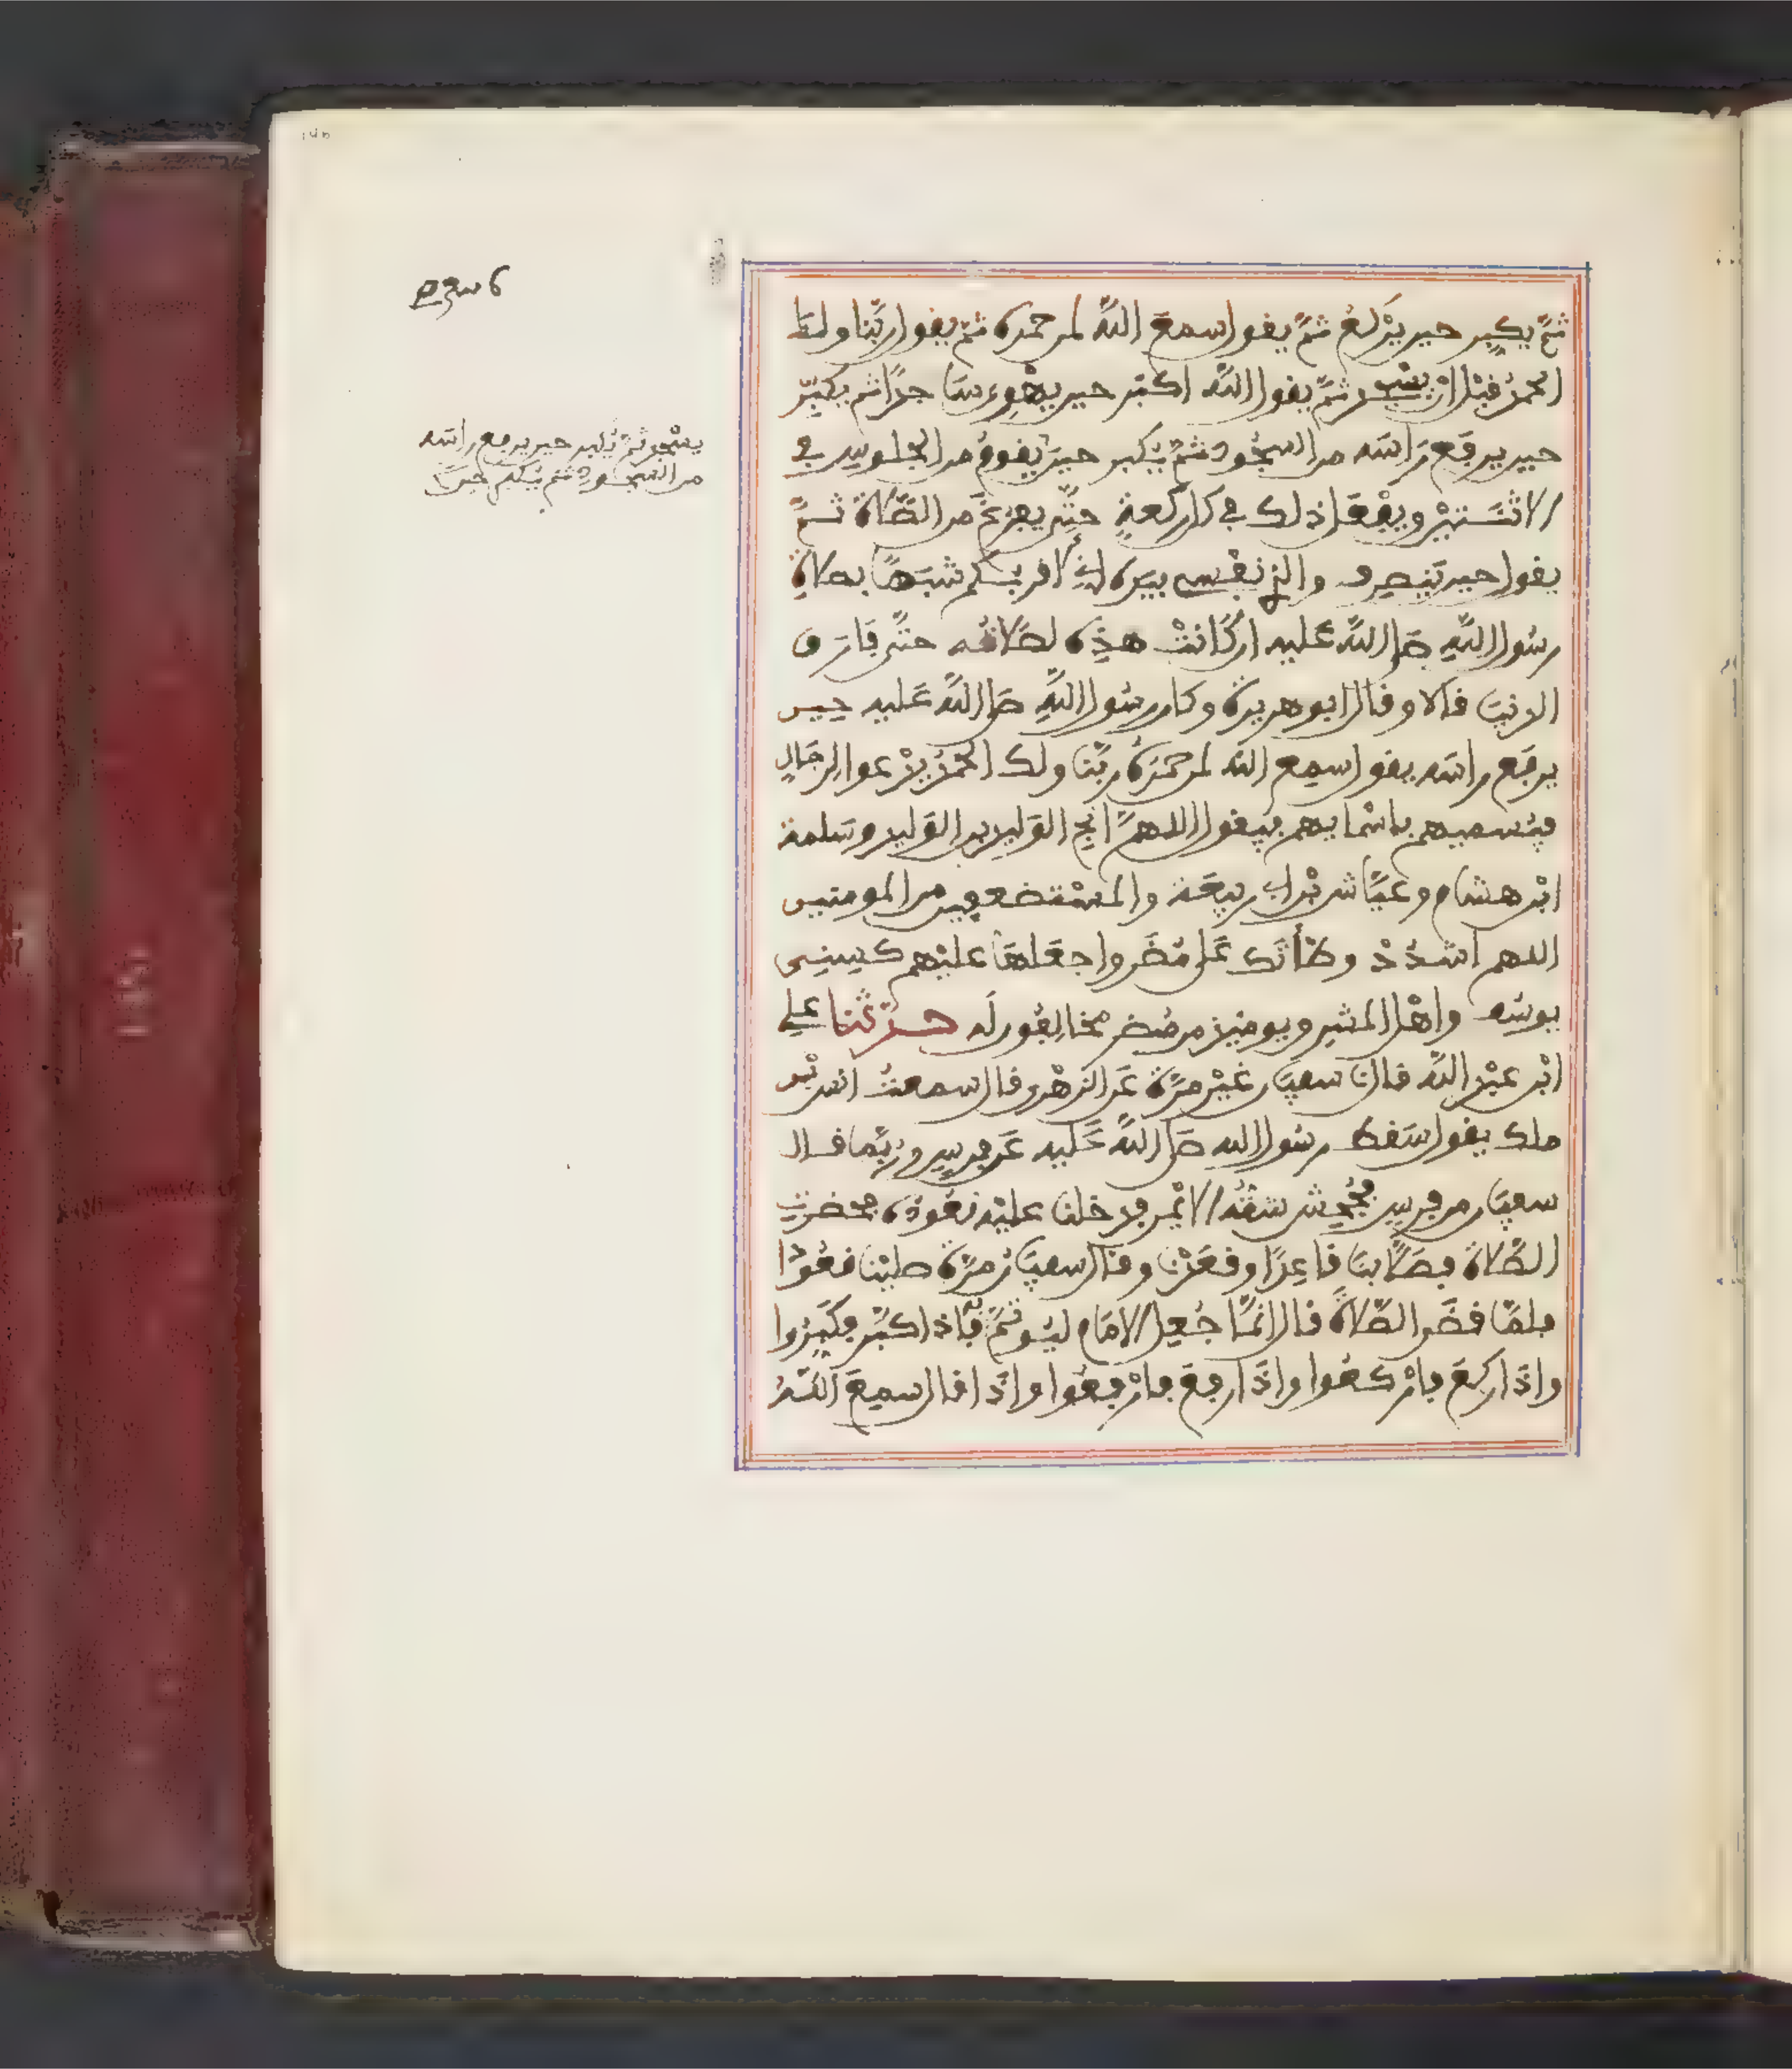 ثمَّ يكبِر حين يرْكَعُ ثمَّ يقول سمعَ اللَّهُ لمن حمده ثم يقول ربَّنا ولك
الحمدُ قبْل انْ يسْجد ثمَّ يقول اللَّه اكبر حين يهْوِي ساجدًا ثم يكبِّر
حين يرفَع رَاسَه من السجُود ثمَّ يُكبر حينَ يقومُ من الجلوسِ في
الاثنَتينْ ويفْعَل ذلك في كل ركعةٍ حتَّى يفرغَ من الصَّلاة ثمَّ
يقول حين يَنصرف والذِي نفْسي بيَده اني لأقربكم شبَهًا بصلاةِ
رسُول اللَّهِ صلى اللَّهُ عَليه ان كَانتْ هذِه لصَلاتُه حتَّى فَارَق
الدنيَا قالا وقال ابو هريرة وكان رسُول اللَّهِ صلى اللَّهُ عَليه حِين
يرفَع راسَه يقول سمِع اللهُ لمن حمدَهُ ربَّنا ولك الحمْدُ يدْعوا لِرجَالٍ
فيُسميهم باسْمايهم فيَقول اللهمَّ انجِ الوَليدَ بن الوَليد وسَلمة
ابْن هشام وعَيَّاش بْن ابي ربيعَة والمسْتضعفِين من المومنين
اللهم اشدُدْ وطْأتَك عَلى مُضَر واجعَلهَا عليْهم كسِنِى
يوسُف واهْل المشرِق يوميِذٍ من مُضر مخالِفُون لَه حدّثنا علي
ابْن عبْد اللَّه قال نا سفيَان غيْر مرَّة عَن الزهْرى قال سمعتُ انس بْن
ملك يقول سَقط رسُول الله صلى اللَّهُ عَليه عَن فرسٍ ورُبَّما قال
سفيَان من فرسٍ فجُحِش شقُّه الايْمن فدخلنا عليْه نعُودُه فحضرتِ
الصَّلاة فصَلَّا بنَا قاعِدًا وقعَدْنا وقال سفيَانُ مرَّة صليْنا قعُودًا
فلمَّا قضَى الصَّلاةَ قال انمَّا جُعِل الامَام ليُوتَمَّ به فاذا كبَّر فكَبِّروا
واذَا ركَعَ فارْكعُوا واذَا رفعَ فارْفعُوا واذَا قال سمِعَ اللَّهُ
يسْجد ثمَّ يُكبر حين يرفع راسَه
من السجُودِ ثم يُكبر حين